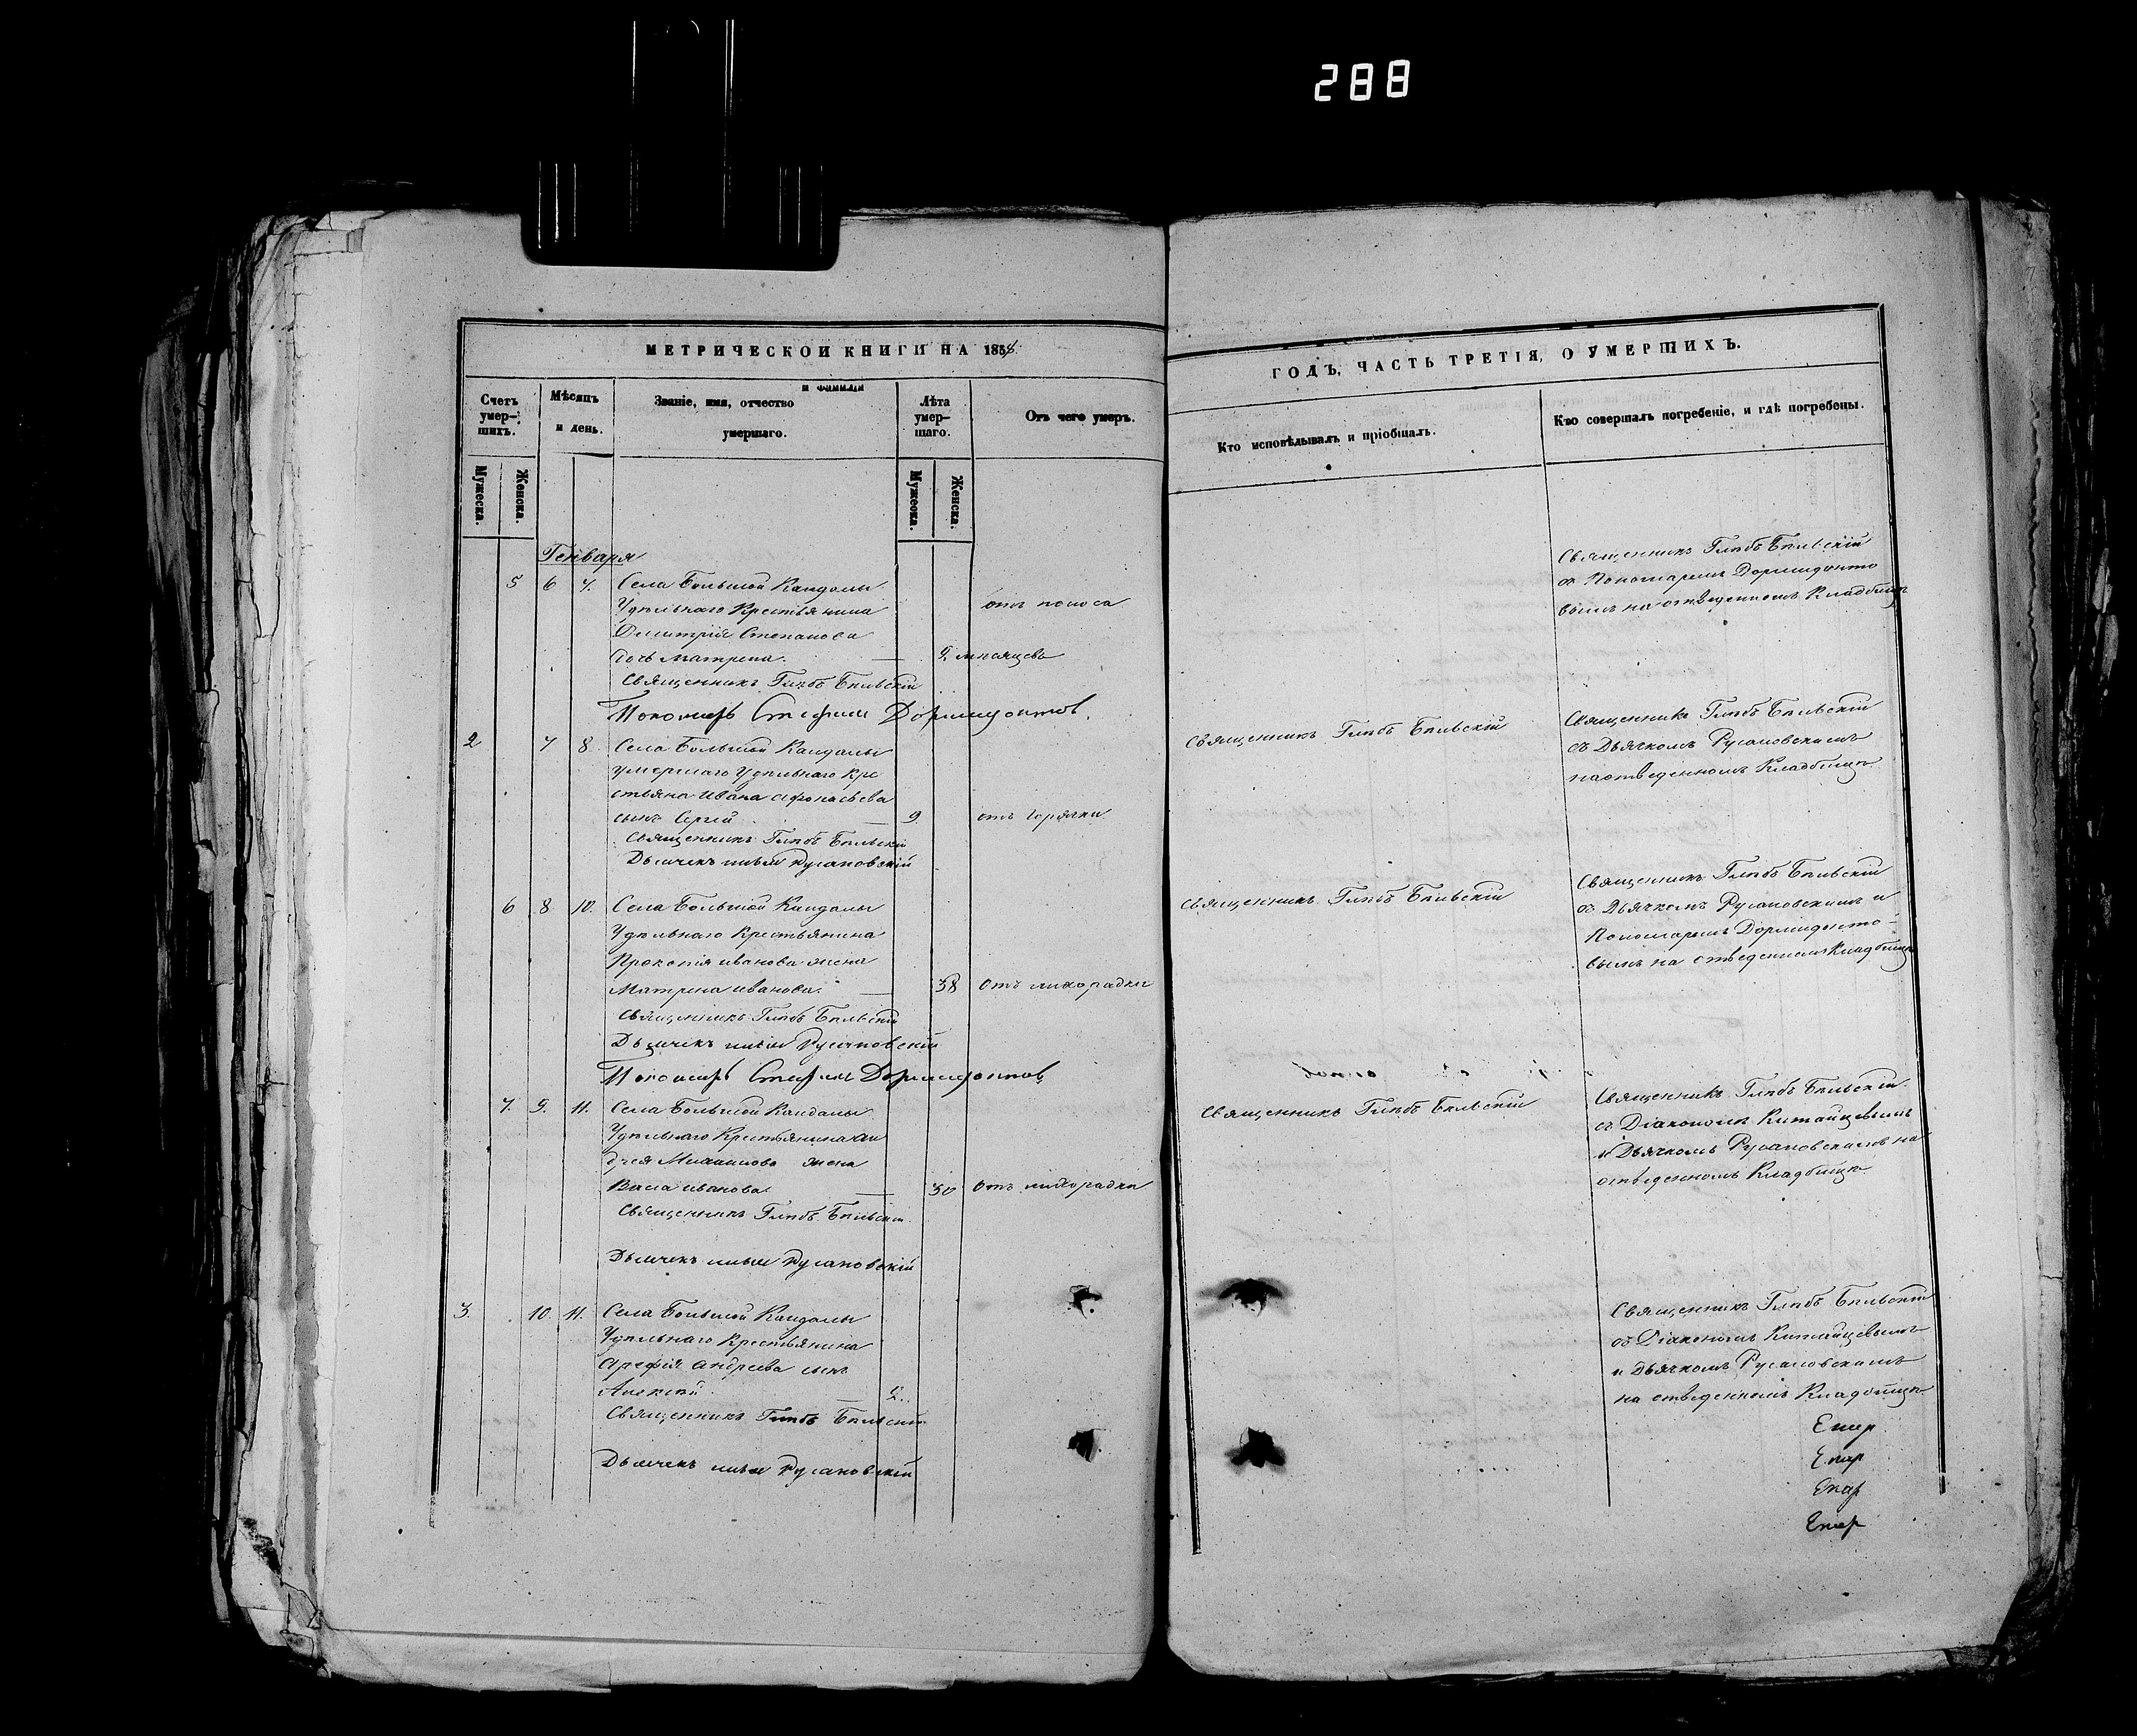 288
МЕТРИЧЕСКОЙ КНИГИ НА 1858
ГОДЪ, ЧАСТЬ ТРЕТІЯ, О УМЕРШИХЪ.
Счетъ умер-шихъ.
Мужеска.
Женска.
Мѣсяцъ и день.
и фамилія
Званіе, имя, отчество
умершаго.
Лѣта умер-шаго.
Мужеска.
Женска.
Отъ чего умеръ.
Кто исповѣдывалъ и пріобщалъ.
Кто совершалъ погребеніе, и гдѣ погребены.
Генваря
5 6 7. Села Большой Кандалы
Удѣльнаго Крестьянина
отъ поноса
Димитрія Степанова
дочь Матрена. 2 мѣсяцевъ
Священникъ Глѣбъ Бѣльскій
Пономарь Стефанъ Доримедонтов.
Священникъ Глѣбъ Бѣльскій
съ Пономаремъ Доримидонто
вымъ на отведенномъ Кладбищѣ
2 7 8. Села Большой Кандалы
умершаго Удѣльнаго Кре
стьяна Ивана Афонасьева
сынъ Сергій 9 отъ горячки
Священникъ Глѣбъ Бѣльскій
Дьячекъ Русановскій
Священникъ Глѣбъ Бѣльскій
Священникъ Глѣбъ Бѣльскій
съ Дьячкомъ Русановскимъ
на отведенномъ Кладбищѣ
6 8 10. Села Большой Кандалы
Удѣльнаго Крестьянина
Прокопія Иванова жена
Матрена Иванова. 38 отъ лихорадки
Священникъ Глѣбъ Бѣльскій
Дьячекъ Русановскій
Пономарь Стефанъ Доримедонтов
Священникъ Глѣбъ Бѣльскій
Священникъ Глѣбъ Бѣльскій
съ Дьячкомъ Русановскимъ и
Пономаремъ Доримидонто-
вымъ на отведенномъ Кладбищѣ
7. 9. 11. Села Большой Кандалы
Удѣльнаго Крестьянина Ан
дрея Михаилова жена
Васса Иванова 30 отъ лихорадки
Священникъ Глѣбъ Бѣльскій
Дьячекъ Русановскій
Священникъ Глѣбъ Бѣльскій
Священникъ Глѣбъ Бѣльскій
съ Діакономъ Китайцевымъ
и Дьячкомъ Русановскимъ на
отведенномъ Кладбищѣ
3. 10. 11. Села Большой Кандалы
Удѣльнаго Крестьянина
Арефія Андреева сынъ
Алексѣй. 2.
Священникъ Глѣбъ Бѣльскій
Дьячекъ Русановскій
Священникъ Глѣбъ Бѣльскій
съ Діакономъ Китайцевымъ
и Дьячкомъ Русановскимъ
на отведенномъ Кладбищѣ